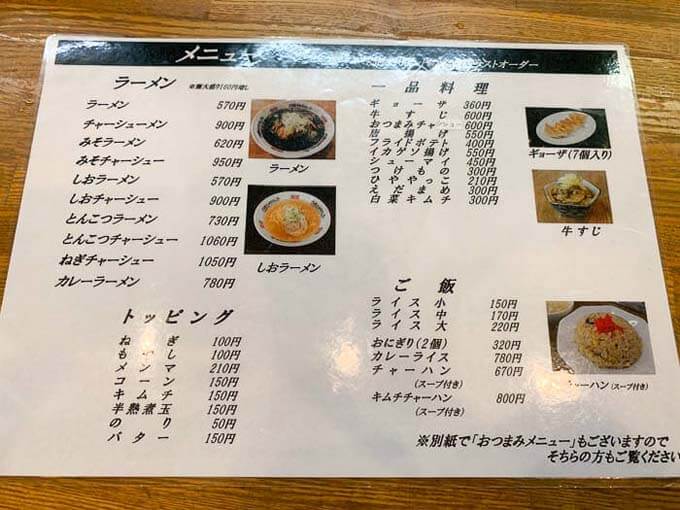 メニュー
ストオーダー
ラーメン
ラーメン 570円
チャーシューメン 900円
みそラーメン 620円
みそチャーシュー 950円
しおラーメン 570円
しおチャーシュー 900円
とんこつラーメン 730円
とんこつチャーシュー 1060円
ねぎチャーシュー 1050円
カレーラーメン 780円
ラーメン
しおラーメン
トッピング
ねぎ 100円
もやし 100円
メンマ 210円
コーン 150円
キムチ 150円
半熟煮玉 150円
のり 50円
バター 150円
一品料理
ギョーザ 360円
牛すじ 600円
おつまみチャーシュー 600円
唐揚げ 550円
フライドポテト 400円
イカゲソ揚げ 550円
シューマイ 450円
つけもの 300円
ひややっこ 210円
えだまめ 300円
白菜キムチ 300円
ギョーザ(7個入り)
牛すじ
ご飯
ライス小 150円
ライス中 170円
ライス大 220円
おにぎり(2個) 320円
カレーライス 780円
チャーハン 670円
(スープ付き)
キムチチャーハン 800円
(スープ付き)
チャーハン(スープ付き)
※別紙で「おつまみメニュー」もございますので
そちらの方もご覧ください